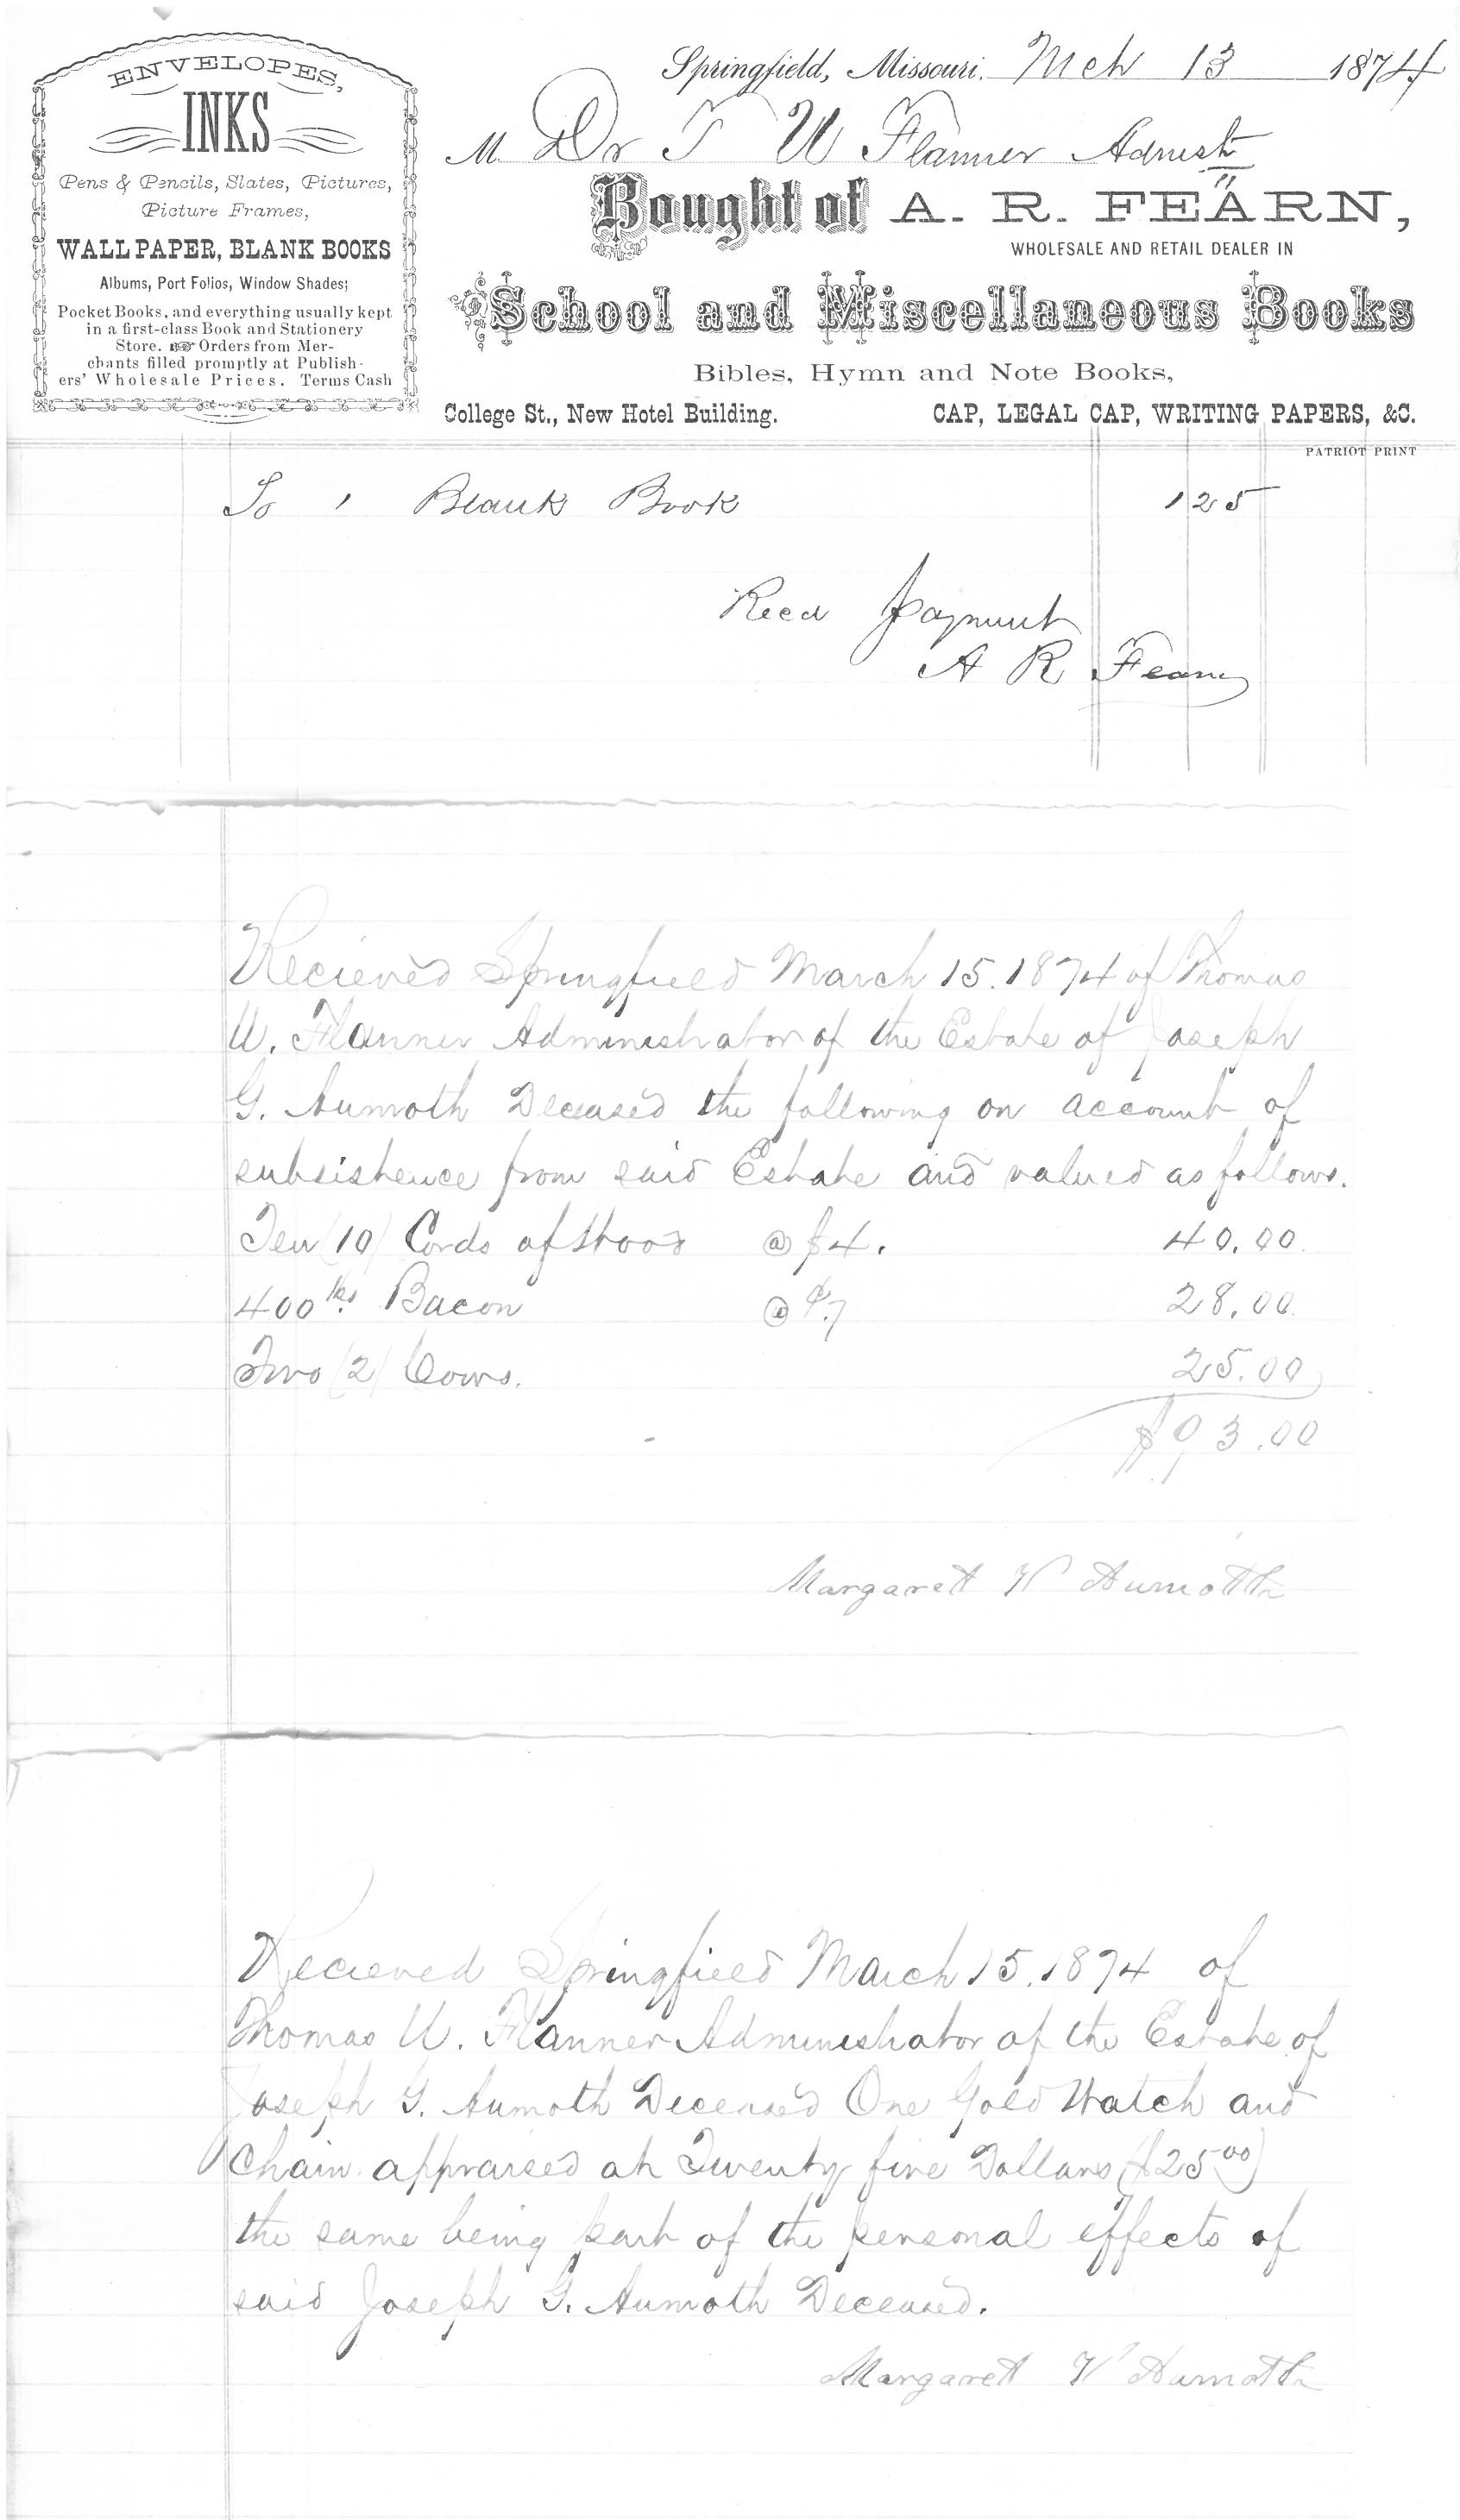 ENVELOPES,
INKS
Pens & Pencils, Slates, Pictures,
Picture Frames,
WALL PAPER, BLANK BOOKS
Albums, Port Folios, Window Shades;
Pocket Books, and everything usually kept
in a first-class Book and Stationery
Store. ☞ Orders from Mer-
chants filled promptly at Publish-
ers' Wholesale Prices. Terms Cash
Springfield, Missouri. Mch 13 1874
M. Dr T U Flanner Admistr
Bought of A. R. FEARN,
WHOLESALE AND RETAIL DEALER IN
School and Miscellaneous Books
Bibles, Hymn and Note Books,
College St., New Hotel Building. CAP, LEGAL CAP, WRITING PAPERS, &C.
PATRIOT PRINT
To 1 Blank Book 1 25
Recd Payment
A R Fearn
Recieved Springfield March 15. 1874 of Thomas
U. Flanner Administrator of the Estate of Joseph
G. Aumoth Deceased the following on account of
subsistence from said Estate and valued as follows.
Ten (10) Cords of Wood @ $4. 40.00.
400 lbs. Bacon @ ¢.7 28.00.
Two (2) Cows. 25.00
$93.00
Margaret V Aumoth
Recieved Springfield March 15. 1874 of
Thomas U. Flanner Administrator of the Estate of
Joseph G. Aumoth Deceased One Gold Watch and
Chain appraised at Twenty five Dollars ($25.00)
the same being part of the personal effects of
said Joseph G. Aumoth Deceased.
Margaret V Aumoth